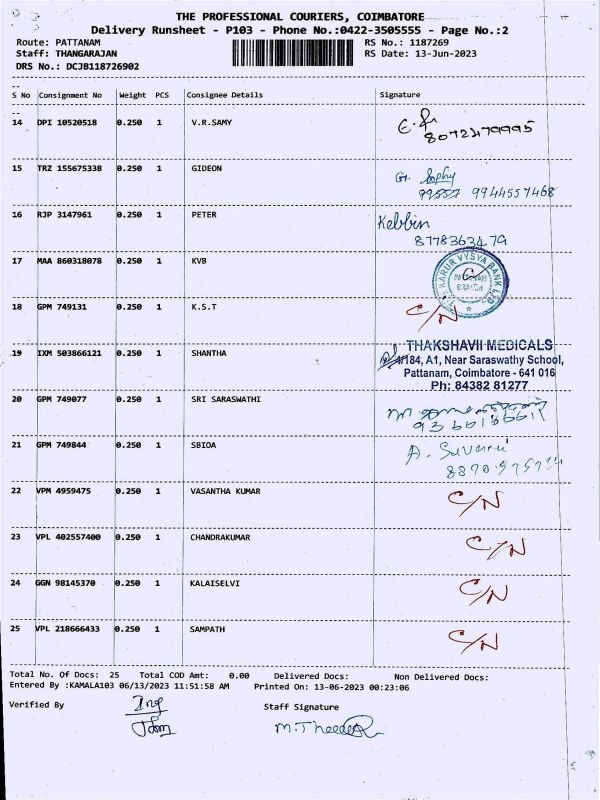 THE PROFESSIONAL COURIERS, COIMBATORE
Delivery Runsheet - P103 - Phone No.:0422-3505555 - Page No.:2
Route: PATTANAM RS No.: 1187269
Staff: THANGARAJAN RS Date: 13-Jun-2023
DRS No.: DCJB118726902
S No Consignment No Weight PCS Consignee Details Signature
14 DPI 10520518 0.250 1 V.R.SAMY
8072479995
15 TRZ 155675338 0.250 1 GIDEON G. Sophy
9944557468
16 RJP 3147961 0.250 1 PETER Kebbin
8778363479
17 MAA 860318078 0.250 1 KVB KARUR VYSYA BANK LTD
BRANCH
18 GPM 749131 0.250 1 K.S.T C/N
19 IXM 503866121 0.250 1 SHANTHA THAKSHAVII MEDICALS
4/184, A1, Near Saraswathy School,
Pattanam, Coimbatore - 641 016
Ph: 84382 81277
20 GPM 749077 0.250 1 SRI SARASWATHI
21 GPM 749844 0.250 1 SBIOA
22 VPM 4959475 0.250 1 VASANTHA KUMAR C/N
23 VPL 402557400 0.250 1 CHANDRAKUMAR C/N
24 GGN 98145370 0.250 1 KALAISELVI C/N
25 VPL 218666433 0.250 1 SAMPATH C/N
Total No. Of Docs: 25 Total COD Amt: 0.00 Delivered Docs: Non Delivered Docs:
Entered By :KAMALA103 06/13/2023 11:51:58 AM Printed On: 13-06-2023 00:23:06
Verified By Staff Signature